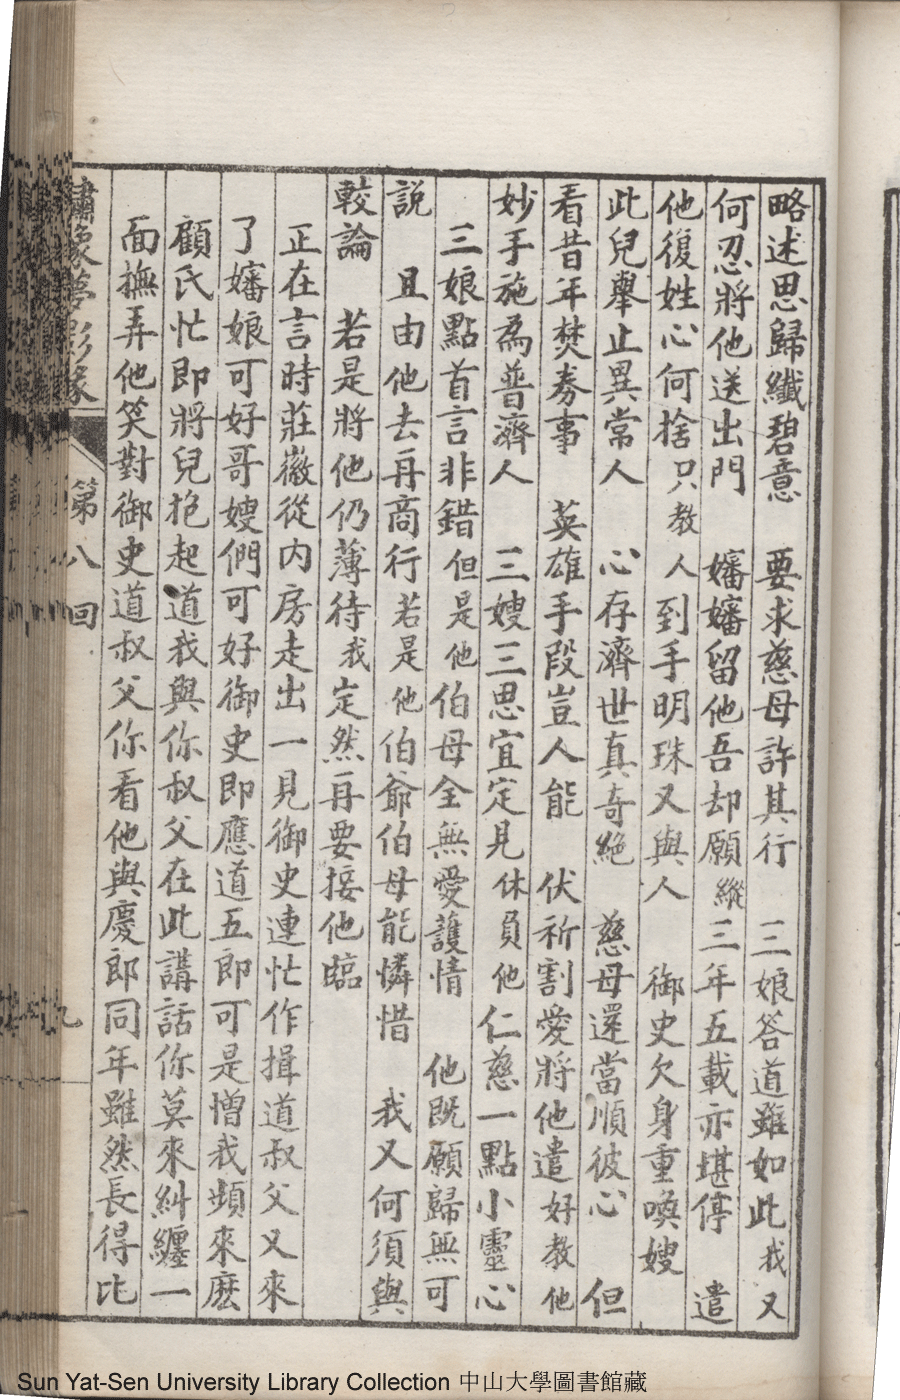 略述思歸纖碧意　要求慈母許其行　三娘答道雖如此我又
何忍將他送出門　嬸嬸留他吾却願縱三年五載亦堪停　遣
他復姓心何捨只教人到手明珠又與人　御史欠身重喚嫂
此兒舉止異常人　心存濟世真奇絕　慈母還當順彼心　但
看昔年焚劵事　英雄手段豈人能　伏祈割愛將他遣好教他
妙手施為普濟人　三嫂三思宜定見休負他仁慈一點小靈心
三娘點首言非錯但是他伯母全無愛護情　他既願歸無可
說　且由他去再商行若是他伯爺伯母能憐惜　我又何須與
較論　若是將他仍薄待我定然再要接他臨
正在言時莊徽從內房走出一見御史連忙作揖道叔父又來
了嬸娘可好哥嫂們可好御史即應道五郎可是憎我頻來麽
顧氏忙即將兒抱起道我與你叔父在此講話你莫來糾纏一
面撫弄他笑對御史道叔父你看他與慶郎同年雖然長得比
繡像夢影緣　第八回　九
Sun Yat-Sen University Library Collection 中山大學圖書館藏